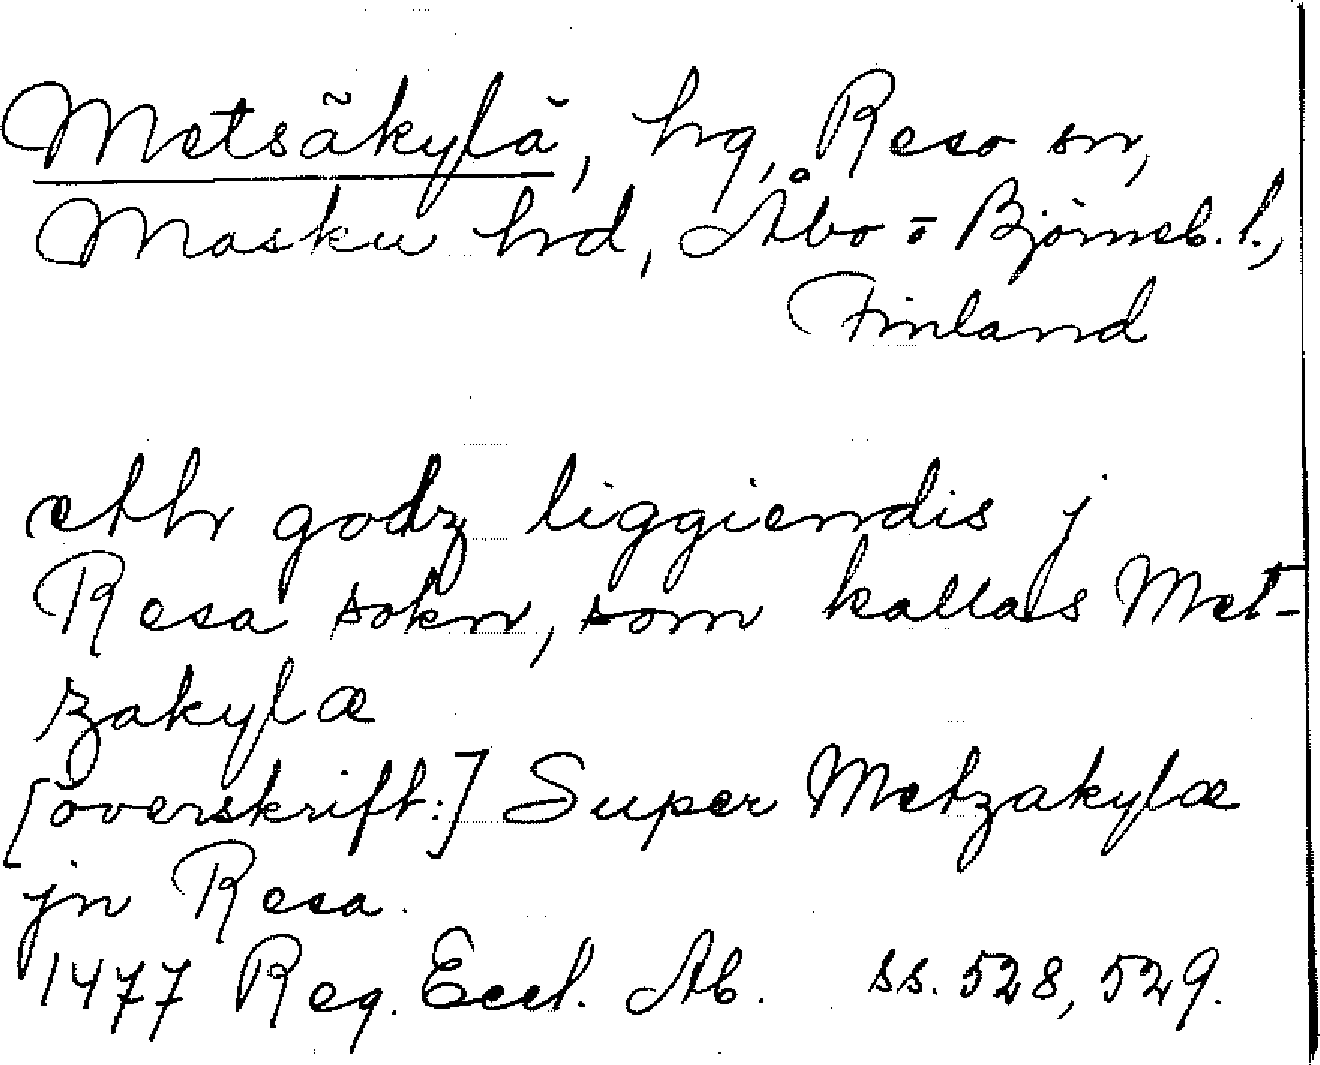 Metsäkylä, hg, Reso sn,
Masku hd, Åbo-Björneb. l.,
Finland
etth godz liggiendis j
Resa sokn, som kallas Met-
zakylæ
[överskrift:] Super Metzakylæ
jn Resa.
1477 Reg. Eccl. Ab. ss. 528, 529.